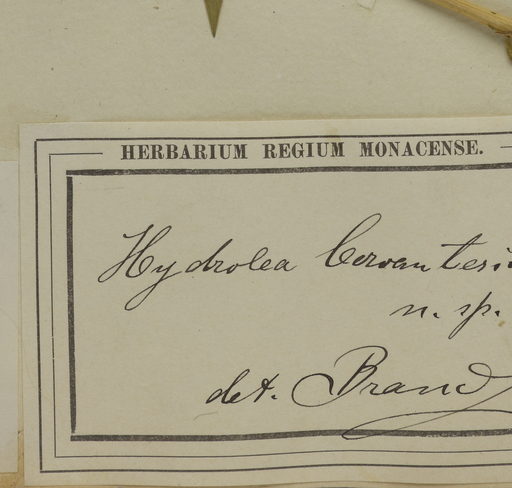 HERBARIUM REGIUM MONACENSE.
Hydrolea Cervantesi
n. sp.
det. Brand